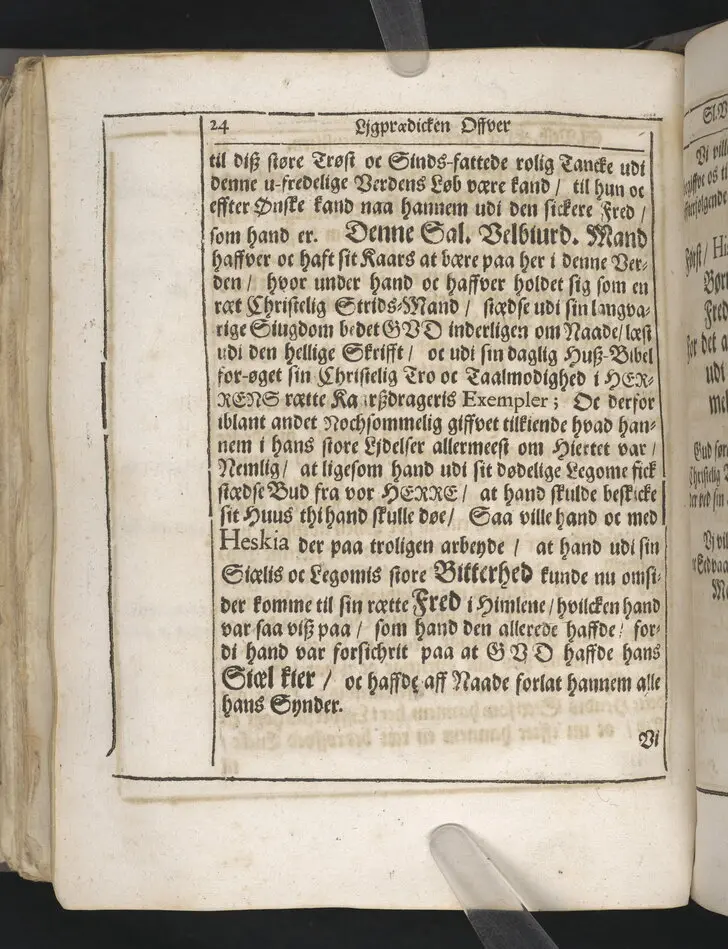 24 Ljgprædicken Offver
til diß støre Trøst oc Sinds-fattede rolig Tancke udi
denne u-fredelige Verdens Løb være kand / til hun oc
effter Ønske kand naa hannem udi den sickere Fred /
som hand er. Denne Sal. Velbiurd. Mand
haffver oc haft sit Kaars at bære paa her i denne Ver-
den / hvor under hand oc haffver holdet sig som en
ræt Christelig Strids-Mand / stædse udi sin langva-
rige Siugdom bedet GVD inderligen om Naade / læst
udi den hellige Skrifft / oc udi sin daglig Huß-Bibel
for-øget sin Christelig Tro oc Taalmodighed i HER-
RENS rætte Kaarßdrageris Exempler ; Oc derfor
iblant andet Nochsommelig giffvet tilkiende hvad han-
nem i hans store Lidelser allermeest om Hiertet var /
Nemlig / at ligesom hand udi sit dødelige Legome fick
stædse Bud fra vor HERRE / at hand skulde beskicke
sit Huus thi hand skulle døe / Saa ville hand oc med
Heskia der paa troligen arbeyde / at hand udi sin
Siælis oc Legomis store Bitterhed kunde nu omsi-
der komme til sin rætte Fred i Himlene / hvilcken hand
var saa viß paa / som hand den allerede haffde / for-
di hand var forsichrit paa at GVD haffde hans
Siæl kier / oc haffde aff Naade forlat hannem alle
hans Synder.
Vi